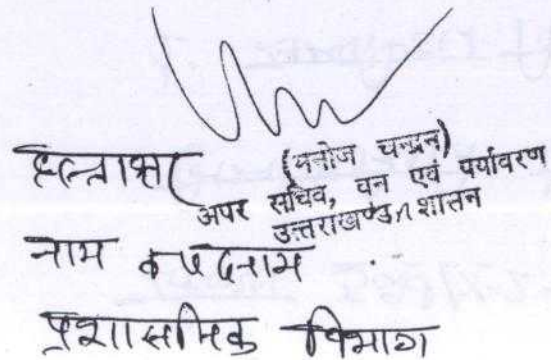 हस्ताक्षर
(मनोज चन्द्रन)
अपर सचिव, वन एवं पर्यावरण
उत्तराखण्ड शासन
नाम व पदनाम
प्रशासनिक विभाग